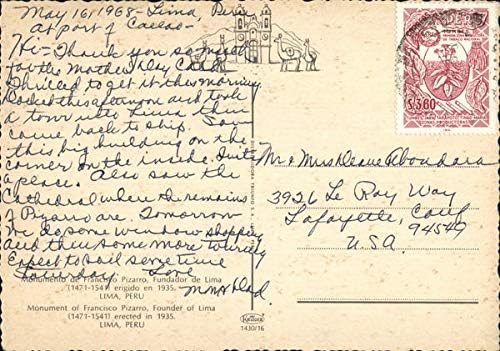 May 16, 1968 - Lima, Peru
At port of Callao -
Hi - Thank you so much
for the Mother's Day Card
Thrilled to get it this morning
Docked this afternoon and took
a tour into Lima then
came back to ship. Saw
this big building on the
corner on the inside. Quite
a place. Also saw the
Cathedral where the remains
of Pizarro are. Tomorrow
we do some window shopping
and then some more touring
Expect to sail some time
Saturday. Love
Mom & Dad.
Monumento de Francisco Pizarro, Fundador de Lima
(1471-1541) erigido en 1935.
LIMA, PERU
Monument of Francisco Pizarro, Founder of Lima
(1471-1541) erected in 1935.
LIMA, PERU
1430/16
PERU
S/.3.60
Mr & Mrs Deane Aboudara
3926 Le Roy Way
Lafayette, Calif
94549
U.S.A.